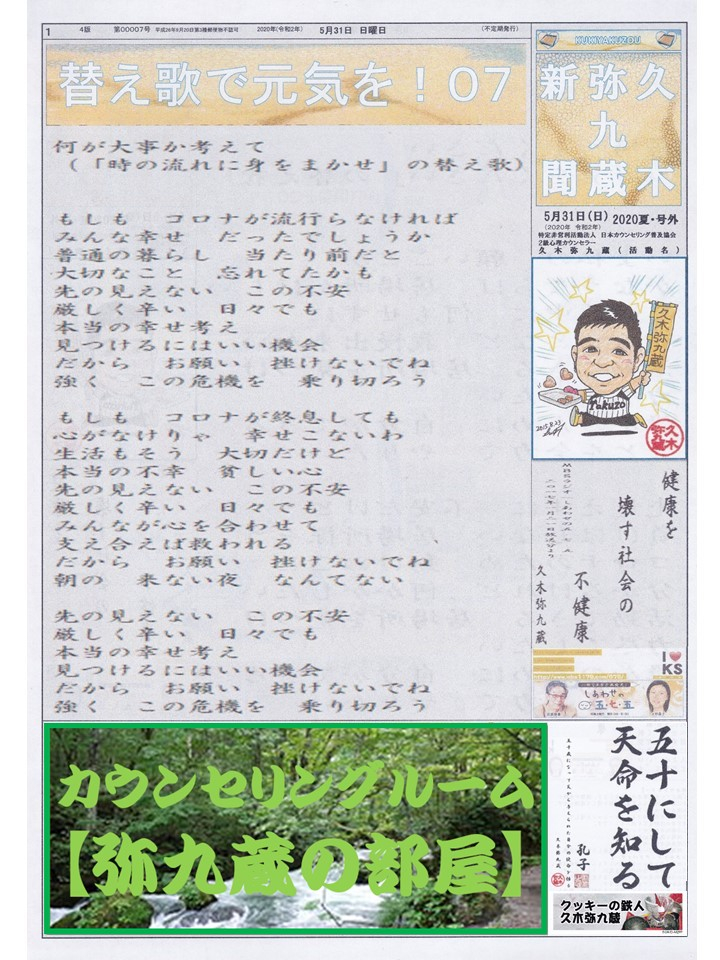 1 4版 第00007号 平成26年8月20日第3種郵便物不認可 2020年(令和2年) 5月31日 日曜日 (不定期発行)
替え歌で元気を！07
何が大事か考えて
(「時の流れに身をまかせ」の替え歌)
もしも コロナが流行らなければ
みんな幸せ だったでしょうか
普通の暮らし 当たり前だと
大切なこと 忘れてたかも
先の見えない この不安
厳しく辛い 日々でも
本当の幸せ考え
見つけるにはいい機会
だから お願い 挫けないでね
強く この危機を 乗り切ろう
もしも コロナが終息しても
心がなけりゃ 幸せこないわ
生活もそう 大切だけど
本当の不幸 貧しい心
先の見えない この不安
厳しく辛い 日々でも
みんなが心を合わせて
支え合えば救われる
だから お願い 挫けないでね
朝の 来ない夜 なんてない
先の見えない この不安
厳しく辛い 日々でも
本当の幸せ考え
見つけるにはいい機会
だから お願い 挫けないでね
強く この危機を 乗り切ろう
KUKIYAKUZOU
久木
弥九蔵
新聞
5月31日(日) 2020夏・号外
(2020年 令和2年)
特定非営利活動法人 日本カウンセリング普及協会
2級心理カウンセラー
久木弥九蔵(活動名)
久木弥九蔵
Yakuzo
2015.8.23
久木弥九蔵
健康を
壊す社会の
不健康
久木弥九蔵
I ♥ KS
しあわせの
五・七・五
五十にして
天命を知る
孔子
カウンセリングルーム
【弥九蔵の部屋】
クッキーの鉄人
久木弥九蔵